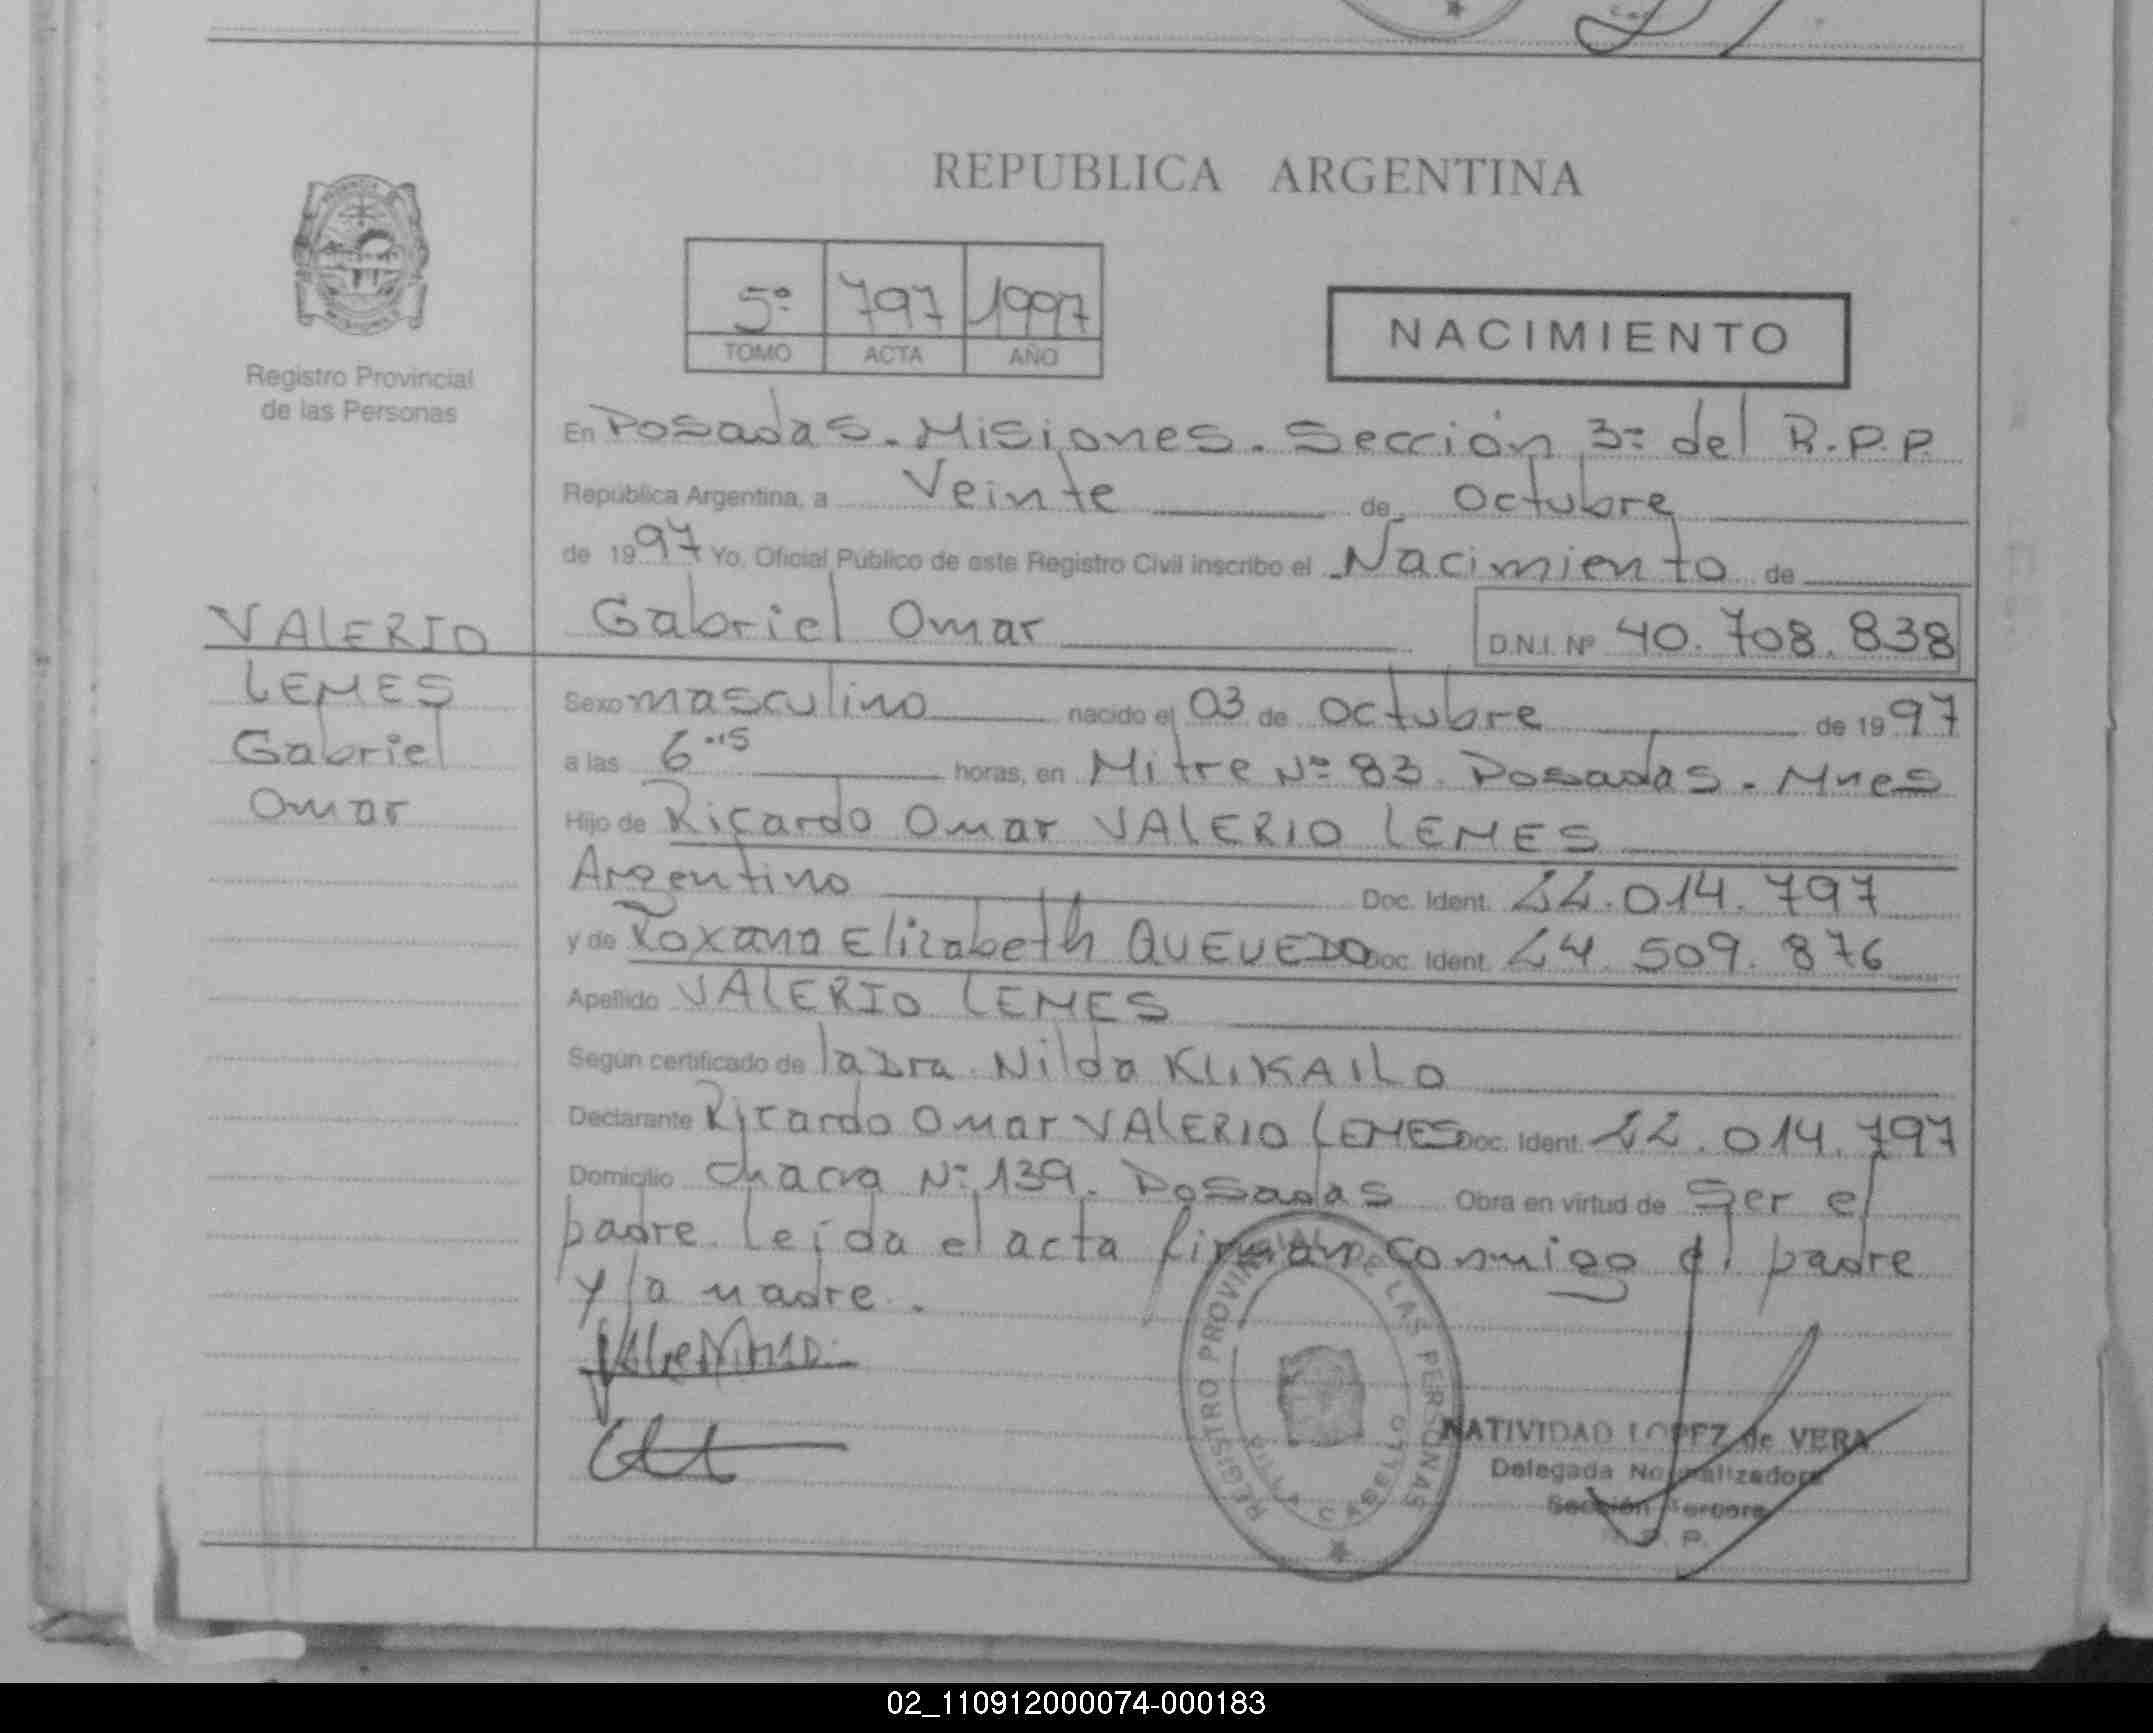 REPUBLICA ARGENTINA
5º 797 1997
TOMO ACTA AÑO
NACIMIENTO
Registro Provincial
de las Personas
En Posadas.Misiones. Sección 3º del R.P.P.
República Argentina, a Veinte de Octubre
de 1997 Yo, Oficial Público de este Registro Civil inscribo el Nacimiento de
Gabriel Omar D.N.I. Nº 40.708.838
VALERIO
LEMES
Gabriel
Omar
Sexo masculino nacido el 03 de Octubre de 1997
a las 6.15 horas, en Mitre Nº 83. Posadas. Mnes
Hijo de Ricardo Omar VALERIO LEMES
Argentino Doc. Ident. 22.014.797
y de Roxana Elizabeth QUEVEDO Doc. Ident. 24.509.876
Apellido VALERIO LEMES
Según certificado de la Dra. Nilda KLIKAILO
Declarante Ricardo Omar VALERIO LEMES Doc. Ident. 22.014.797
Domicilio Chacra Nº 139. Posadas Obra en virtud de Ser el
padre. Leída el acta firman conmigo el padre
y la madre.
REGISTRO PROVINCIAL DE LAS PERSONAS
CABELLO
NATIVIDAD LOPEZ de VERA
Delegada Normalizadora
Sección Tercera
R. P. P.
02_110912000074-000183